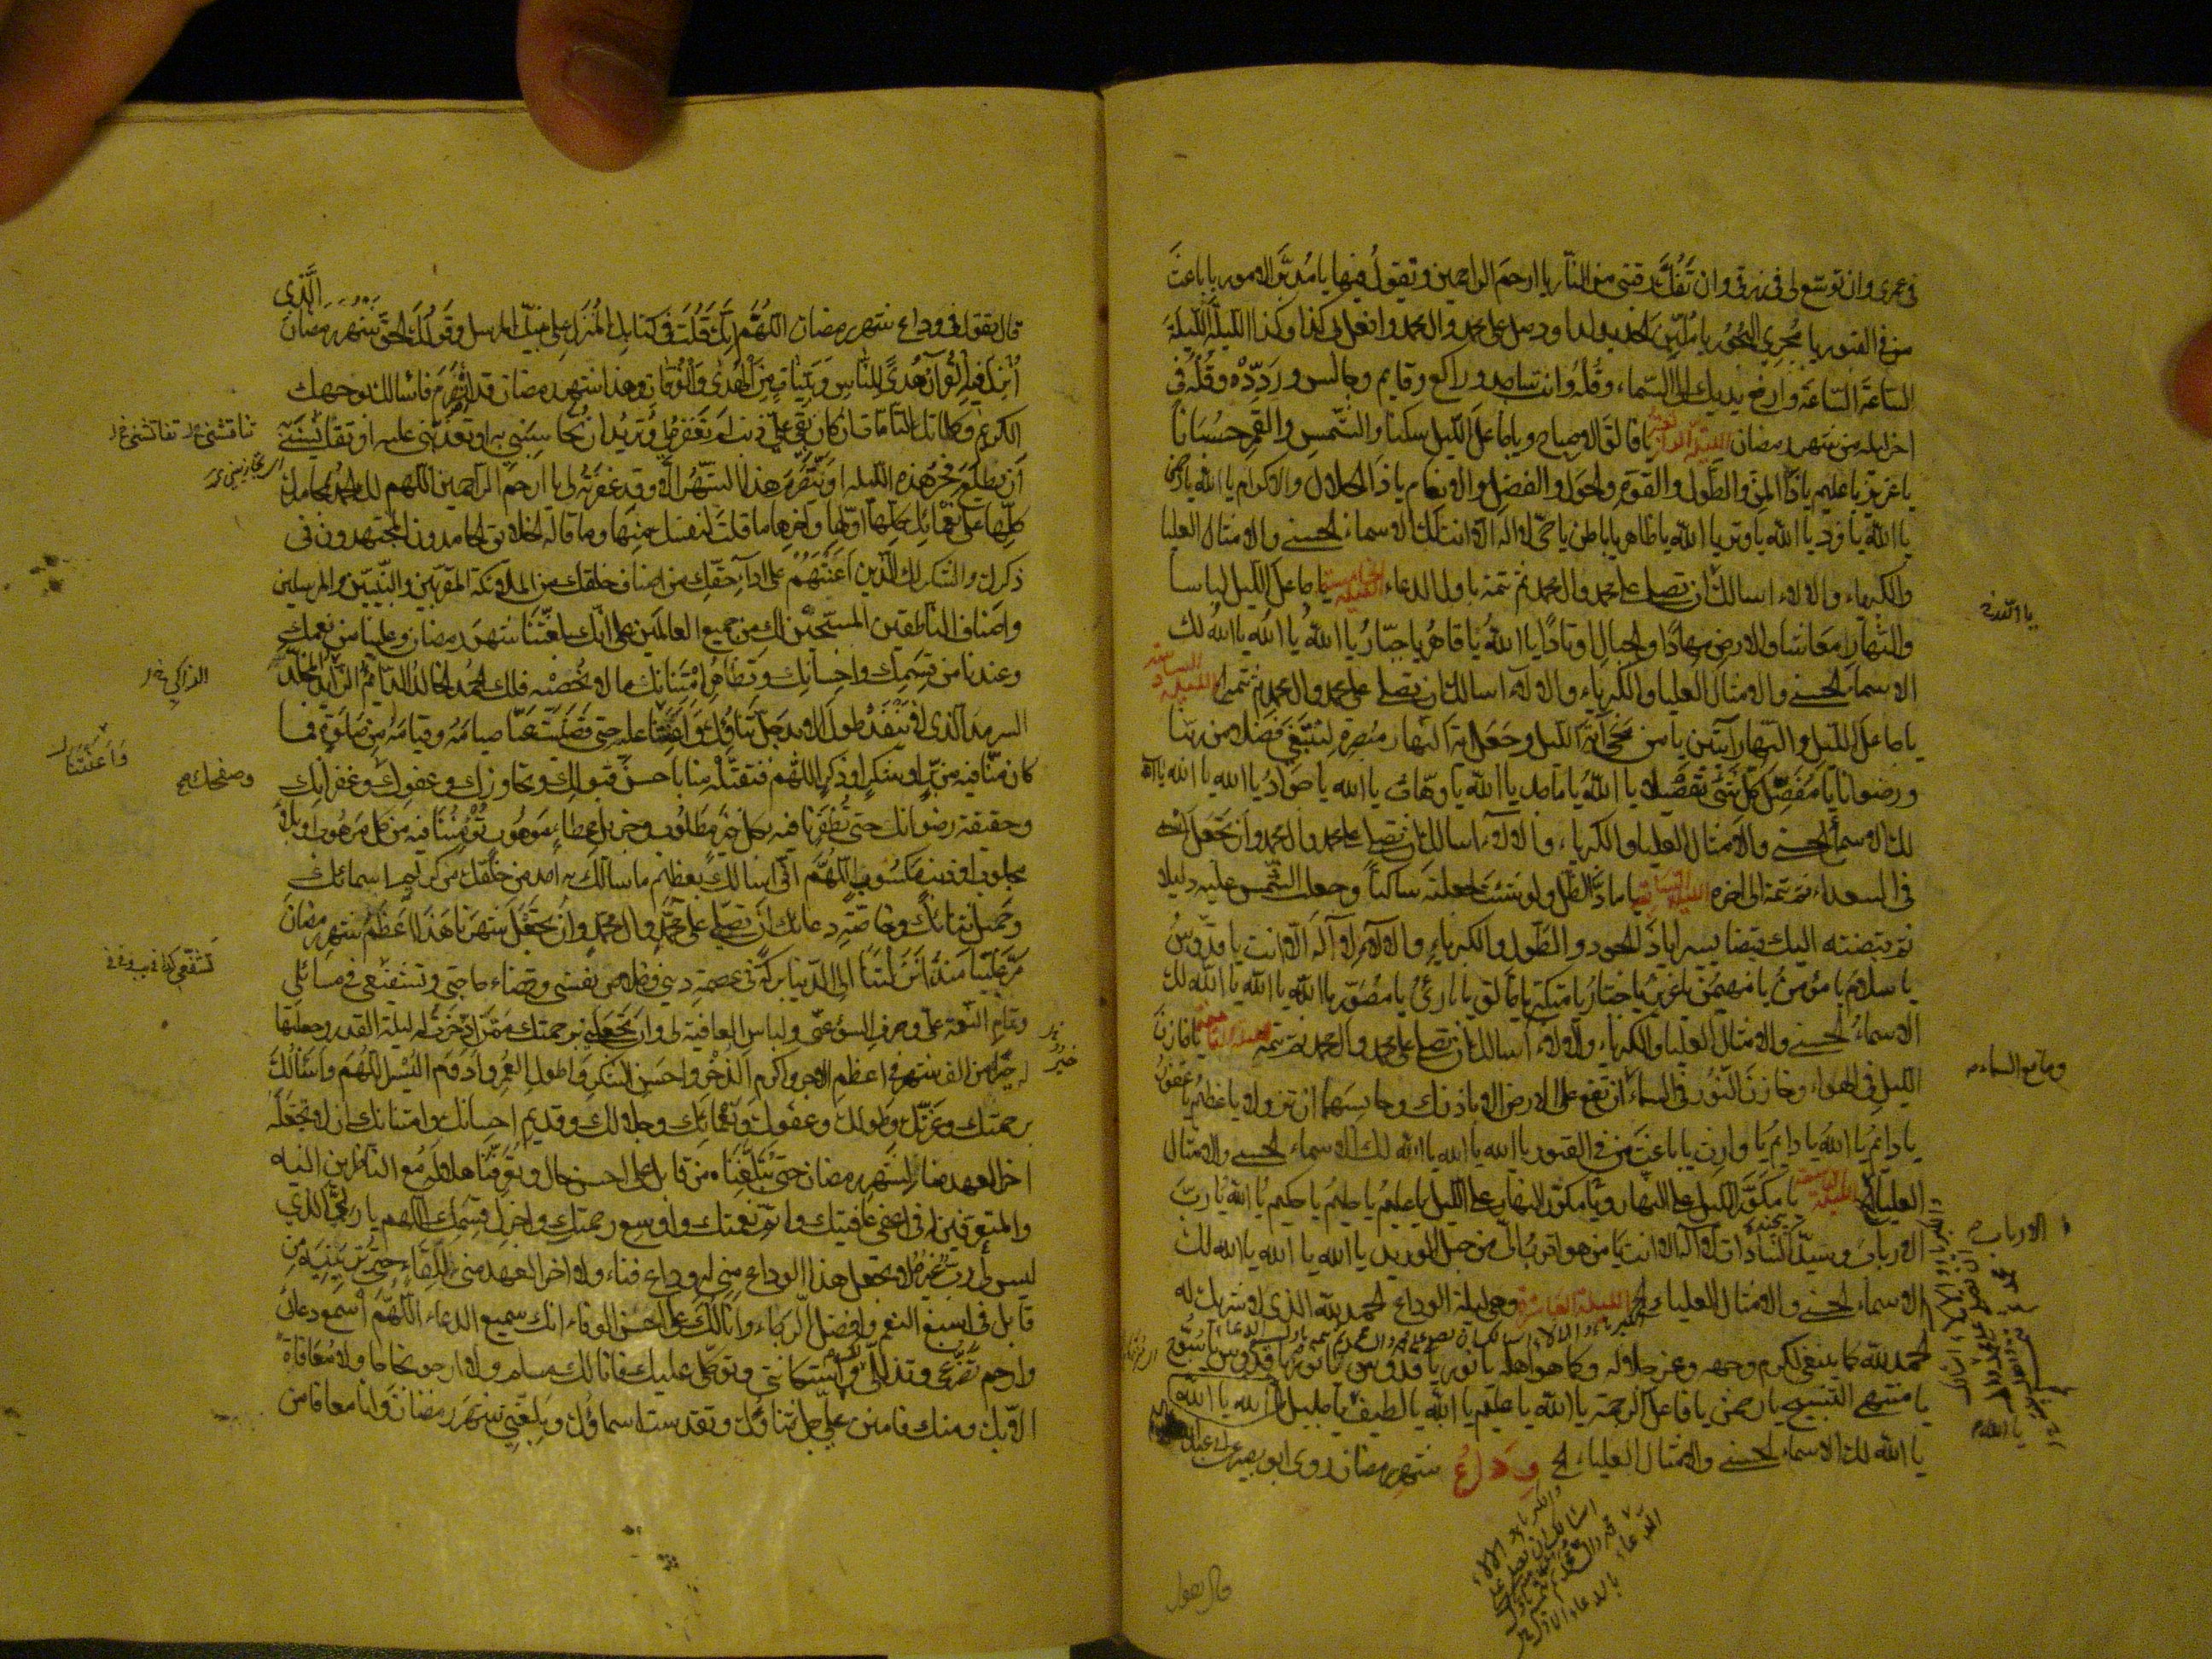 في عمري وان توسّع لي في رزقي وان تفكّ رقبتي من النّار يا ارحم الراحمين وتقول فيها يا مدبّر الامور يا باعث
من في القبور يا مجري البحور يا مليّن الحديد لداود صل على محمد وال محمد وافعل بي كذا وكذا الليلة الليلة
الساعة الساعة وارفع يديك الى السّماء وقله وانت ساجد وراكع وقايم وجالس وردّده وقله في
اخر ليلة من شهر رمضان الليلة الرابعة يا فالق الاصباح ويا جاعل الليل سكنا والشّمس والقمر حسبانا
يا عزيز يا عليم يا ذا المنّ والطّول والقوّة والحول والفضل والانعام يا ذا الجلال والاكرام يا الله يا رحمن
يا الله يا فرد يا الله يا وتر يا الله يا ظاهر يا باطن يا حيّ لا اله الا انت لك الاسماء الحسنى والامثال العليا
والكبرياء والالاء اسالك ان تصلي على محمد وال محمد ثم تتمه باول الدعاء الليلة الخامسة يا جاعل الليل لباسا
والنّهار معاشا والارض مهادا والجبال اوتادا يا الله يا قاهر يا جبّار يا الله يا الله يا الله لك
الاسماء الحسنى والامثال العليا والكبرياء والالاء اسالك ان تصلي على محمد وال محمد ثم تتمه الليلة السادسة
يا جاعل الليل والنّهار آيتين يا من محى آية الليل وجعل آية النهار مبصرة لنبتغي فضلا من ربّنا
ورضوانا يا مفصّل كل شئ تفصيلا يا الله يا ماجد يا الله يا وهّاب يا الله يا جواد يا الله يا الله يا الله
لك الاسماء الحسنى والامثال العليا والكبرياء والالاء اسالك ان تصلي على محمد وال محمد وان تجعل اسمي
في السعداء ثم تتمه الى اخره الليلة السابعة يا مادّ الظلّ ولو شئت لجعلته ساكنا وجعلت الشّمس عليه دليلا
ثم قبضته اليك قبضا يسيرا يا ذا الجود والطّول والكبرياء والالاء لا آله الا انت يا قدّوس
يا سلام يا مؤمن يا مهيمن يا عزيز يا جبّار يا متكبّر يا خالق يا بارئ يا مصوّر يا الله يا الله يا الله لك
الاسماء الحسنى والامثال العليا والكبرياء والالاء اسالك ان تصلي على محمد وال محمد ثم تتمه الليلة الثامنة يا خازن
الليل في الهواء وخازن النّور في السماء ان تقع على الارض الا باذنك وحابسهما ان تزولا يا عظيم يا غفور
يا دائم يا الله يا دائم يا وارث يا باعث من في القبور يا الله يا الله يا الله لك الاسماء الحسنى والامثال
العليا الخ الليلة التاسعة يا مكوّر الليل على النهار ويا مكوّر النهار على الليل يا عليم يا حليم يا حكيم يا الله يا ربّ
الارباب وسيّد السّادات لا آله الا انت يا من هو اقرب اليّ من حبل الوريد يا الله يا الله يا الله لك
الاسماء الحسنى والامثال العلياء الخ الليلة العاشرة وهي ليلة الوداع الحمد لله الذي لا شريك له
الحمد لله كما ينبغي لكرم وجهه وعز جلاله وكما هو اهله يا نور يا قدوس يا نور يا قدوس يا سبّوح
يا منتهى التسبيح يا رحمن يا فاعل الرحمة يا الله يا عليم يا الله يا لطيف يا جليل يا الله يا الله
يا الله لك الاسماء الحسنى والامثال العلياء الخ وداع شهر رمضان روى ابو بصير عن ابي عبدالله
يا الله
وما مع السماء
الارباب
يا الله
والكبرياء والالاء
اسالك ان تصل على
محمد وال محمد
قال يقول
قال يقول في وداع شهر رمضان اللهمّ انّك قلت في كتابك المنزل على نبيّك المرسل وقولك الحقّ شهر رمضان الّذي
أنزل فيه القرآن هدى للنّاس وبيّنات من الهدى والفرقان وهذا شهر رمضان قد انصرم فاسالك بوجهك
الكريم وكلماتك التامّات ان كان بقي عليّ ذنب لم تغفره لي وتريد ان تحاسبني به او تعذّبني عليه او تقايسني
ان يطلع فجر هذه الليلة او يتصرّم هذا الشّهر الّا وقد غفرته لي يا ارحم الراحمين اللهم لك الحمد بمحامدك
كلّها على نعمائك كلّها اوّلها وآخرها ما قلت لنفسك منها وما قاله الخلائق الحامدون المجتهدون في
ذكرك والشكر لك الّذين اعنتهم على اداء حقّك من اصناف خلقك من الملائكة المقرّبين والنّبيّين والمرسلين
واصناف الناطقين المسبّحين لك من جميع العالمين على انّك بلّغتنا شهر رمضان وعلينا من نعمك
وعندنا من قسمك واحسانك وتظاهر امتنانك ما لا نحصيه فلك الحمد الخالد الدّائم الزايد المخلّد
السرمد الذي لا ينفد طول الابد جلّ ثناؤك واعنتنا عليه حتى قضيت عنّا صيامه وقيامه من صلوة فما
كان منّا فيه من برّ او شكر او ذكر اللهم فتقبّله منّا باحسن قبولك وتجاوزك وعفوك وغفرانك
وحقيقة رضوانك حتى تظفرنا فيه بكل خير مطلوب وجزيل عطاء موهوب تؤمننا فيه من كل مرهوب او بلاء
مجلوب او ذنب مكسوب اللهمّ انّي اسالك بعظيم ما سالك به احد من خلقك من كريم اسمائك
وجميل ثنائك وخاصّة دعائك ان تصلّي على محمّد وال محمد وان تجعل شهرنا هذا اعظم شهر رمضان
مرّ علينا منذ انزلتنا الى الدّنيا بركة في عصمة ديني وخلاص نفسي وقضاء حاجتي وتشفّعني في مسائلي
وتمام النّعمة عليّ وصرف السوء عنّي ولباس العافية لي وان تجعلني برحمتك ممّن ادّخرت له ليلة القدر وجعلتها
له خيرا من الف شهر في اعظم الاجر واكرم الذّخر واحسن الشكر واطول العمر وادوم اليسر اللهمّ واسئالك
برحمتك وعزّتك وطولك وعفوك ونعمائك وجلالك وقديم احسانك وامتنانك ان لا تجعله
اخر العهد منّا لشهر رمضان حتّى تبلّغناه من قابل على احسن حال وتعرّفنا هلاله مع النّاظرين اليه
والمتعرّفين له في اعفى عافيتك واتمّ نعمتك واوسع رحمتك واجزل قسمك اللهم يا ربّي الّذي
ليس لي ربّ غيره لا تجعل هذا الوداع منّي له وداع فناء ولا اخر العهد منّي للّقاء حتّى ترينيه من
قابل في اسبغ النعم وافضل الرّخاء وانا لك على احسن الوفاء انك سميع الدعاء اللهمّ اسمع دعائي
وارحم تضرّعي وتذلّلي واستكانتي وتوكّلي عليك فانا لك مسلم ولا ارجو نجاحا ولا معافاة
الّا بك ومنك فامنن عليّ جلّ ثناؤك وتقدّست اسماؤك وبلّغني شهر رمضان وانا معافا من
وصفحك
خير